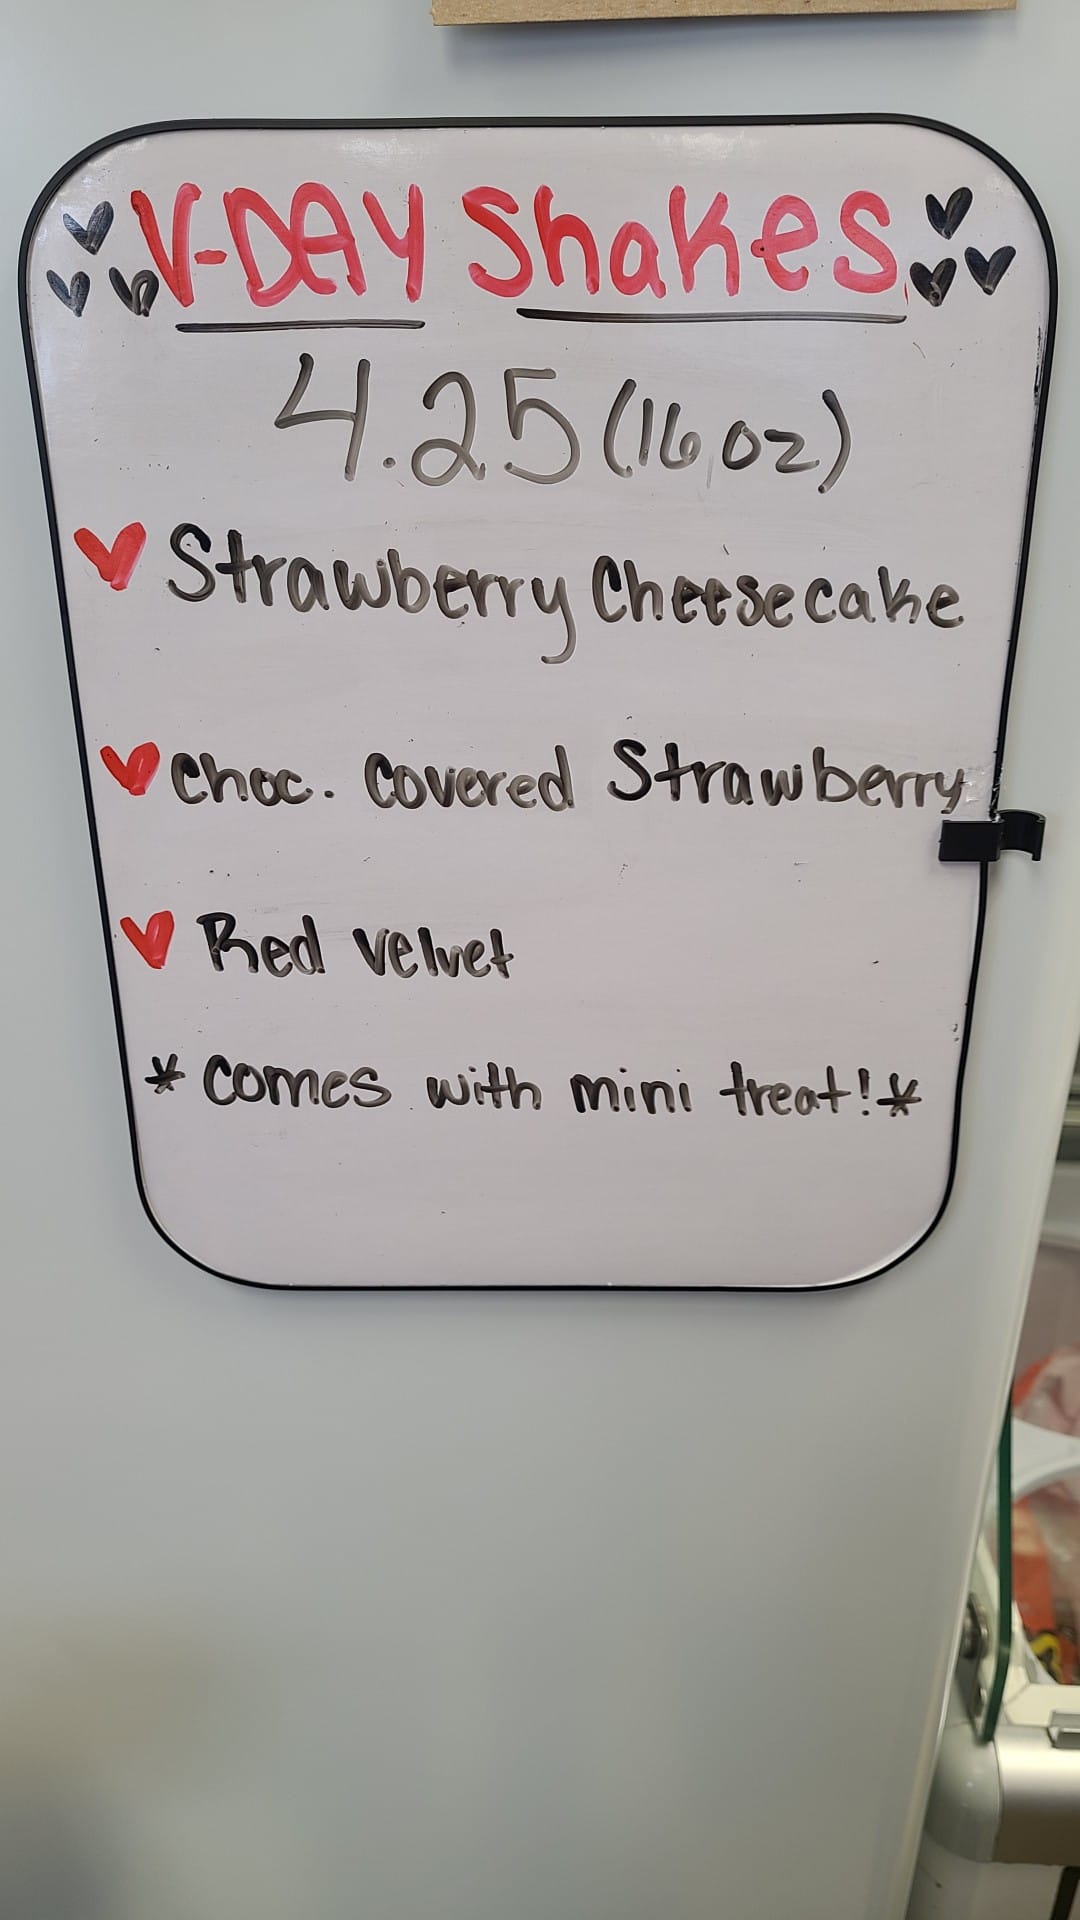 V-DAY Shakes
4.25 (16 oz)
Strawberry Cheesecake
Choc. Covered Strawberry
Red Velvet
* Comes with mini treat! *